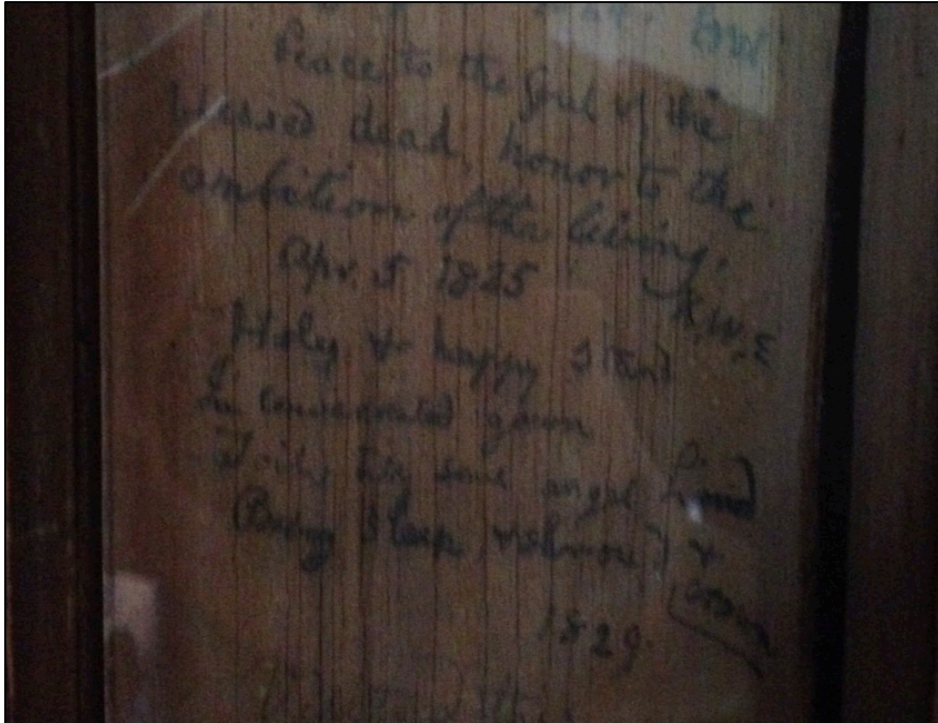 Peace to the Soul of the
blessed dead, honor to the
ambition of the living.
Apr. 5 1825 R.W.E
Holy & happy stand
In consecrated gown
Toil, till some angel hand
Bring sleep &
1829.